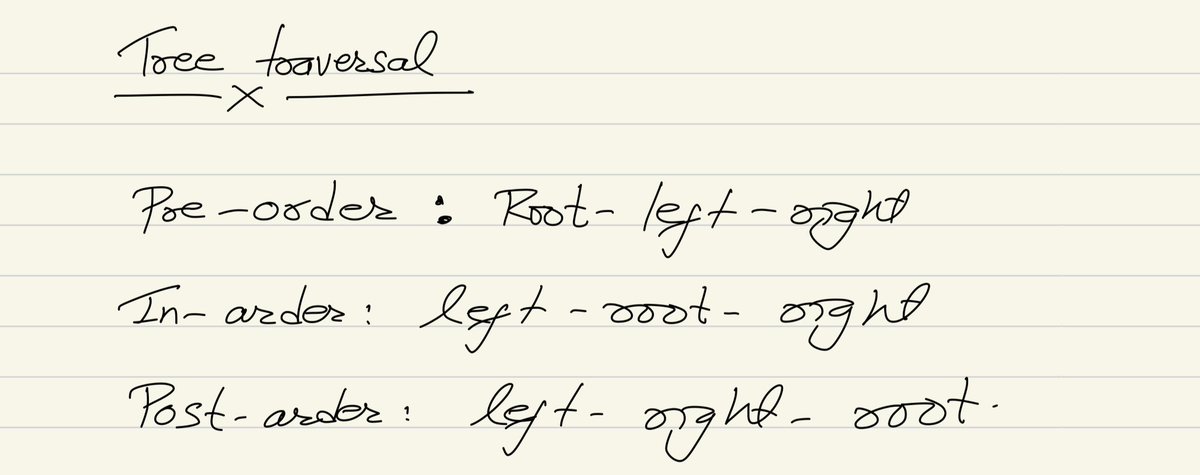 Tree traversal
Pre-order : Root- left - right
In- order : left - root - right
Post- order : left - right - root.